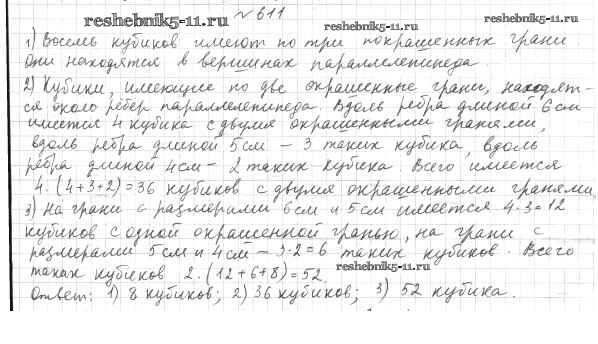 reshebnik5-11.ru
№611
reshebnik5-11.ru
reshebnik5-11.ru
1) Восемь кубиков имеют по три покрашенных грани.
Они находятся в вершинах параллелепипеда.
2) Кубики, имеющие по две окрашенные грани, находят-
ся около рёбер параллелепипеда. Вдоль ребра длиной 6 см
имеется 4 кубика с двумя окрашенными гранями,
вдоль ребра длиной 5 см – 3 таких кубика, вдоль
ребра длиной 4 см – 2 таких кубика. Всего имеется
4·(4+3+2)=36 кубиков с двумя окрашенными гранями
3) На грани с размерами 6 см и 5 см имеется 4·3=12
кубиков с одной окрашенной гранью, на грани с
размерами 5 см и 4 см – 3·2=6 таких кубиков. Всего
таких кубиков 2·(12+6+8)=52.
reshebnik5-11.ru
Ответ: 1) 8 кубиков; 2) 36 кубиков; 3) 52 кубика.